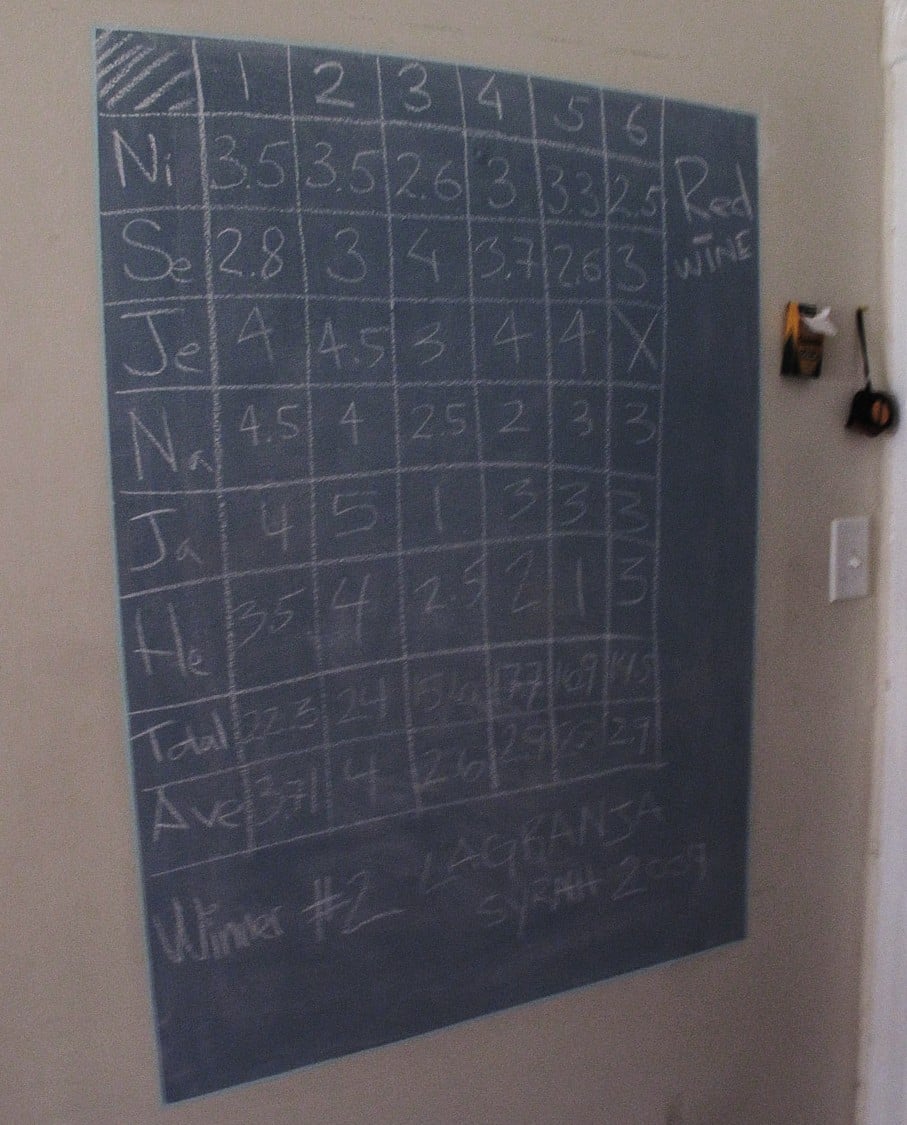 1 2 3 4 5 6
Ni 3.5 3.5 2.6 3 3.3 2.5
Red
WINE
Se 2.8 3 4 3.7 2.6 3
Je 4 4.5 3 4 4 X
Na 4.5 4 2.5 2 3 3
Ja 4 5 1 3 3 3
He 3.5 4 2.5 2 1 3
Total 22.3 24 15.6 17.7 16.9 14.5
Ave 3.71 4 2.6 2.9 2.9
Winner #2 LAGRANJA
SYRAH 2009